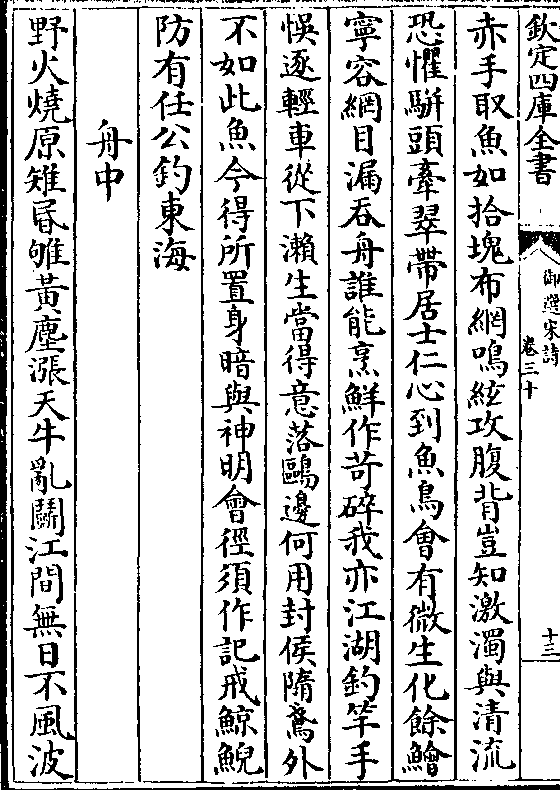 欽定四庫全書
御選宋詩
卷三十
十三
赤手取魚如拾塊布網鳴絃攻腹背豈知激濁與清流
恐懼駢頭牽翠帶居士仁心到魚鳥會有微生化餘鱠
寧容網目漏吞舟誰能烹鮮作苛碎我亦江湖釣竿手
悞逐輕車從下瀨生當得意落鷗邊何用封侯隋鳶外
不如此魚今得所置身暗與神明會徑須作記戒鯨鯢
防有任公釣東海
舟中
野火燒原雉昬雊黃塵漲天牛亂鬬江間無日不風波